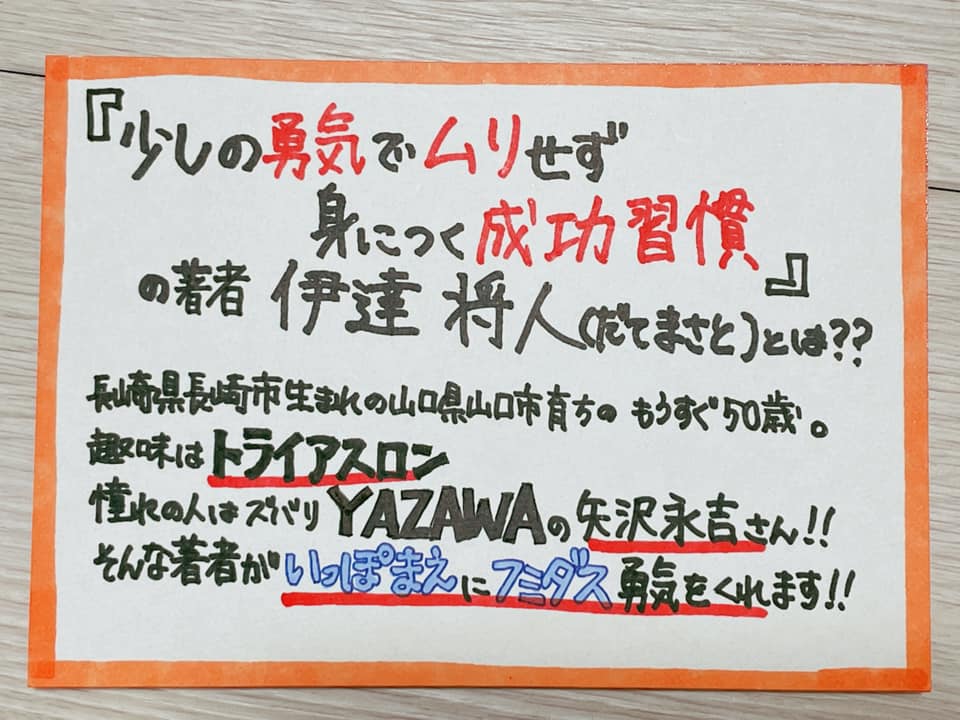 『少しの勇気でムリせず
身につく成功習慣』
の著者 伊達 将人(だてまさと)とは??
長崎県長崎市生まれの山口県山口市育ちの もうすぐ50歳。
趣味はトライアスロン
憧れの人はズバリYAZAWAの矢沢永吉さん!!
そんな著者がいっぽまえにフミダス勇気をくれます!!